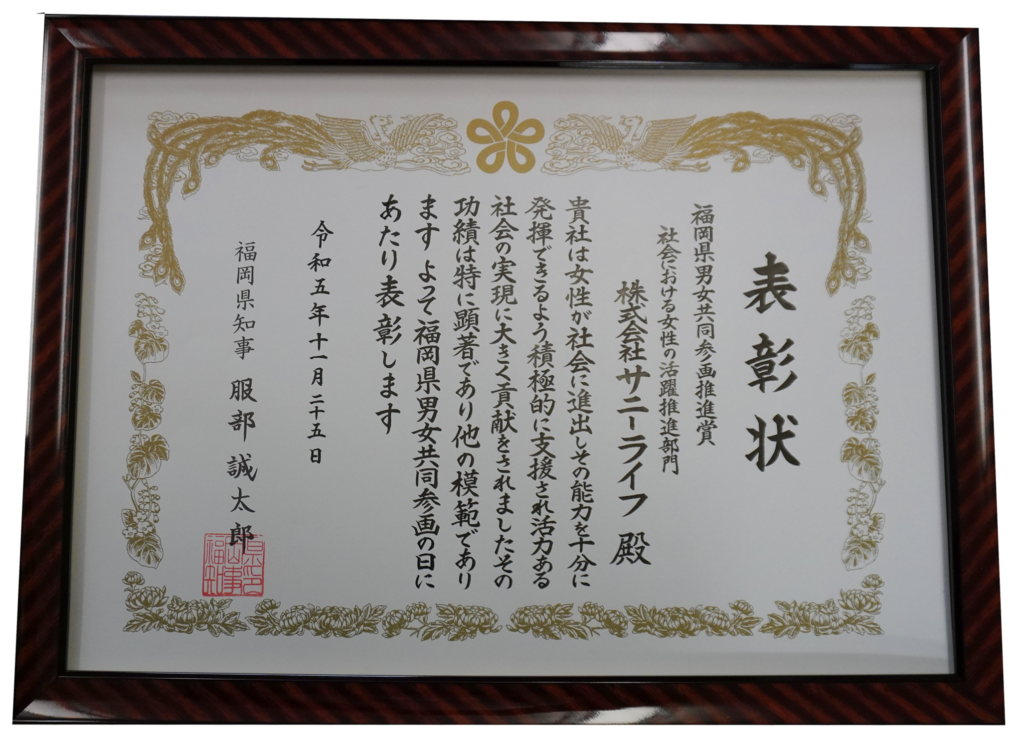 表彰状
福岡県男女共同参画推進賞
社会における女性の活躍推進部門
株式会社サニーライフ 殿
貴社は女性が社会に進出しその能力を十分に
発揮できるよう積極的に支援され活力ある
社会の実現に大きく貢献をされましたその
功績は特に顕著であり他の模範であり
ます よって福岡県男女共同参画の日に
あたり表彰します
令和五年十一月二十五日
福岡県知事 服部誠太郎
福岡県知事印